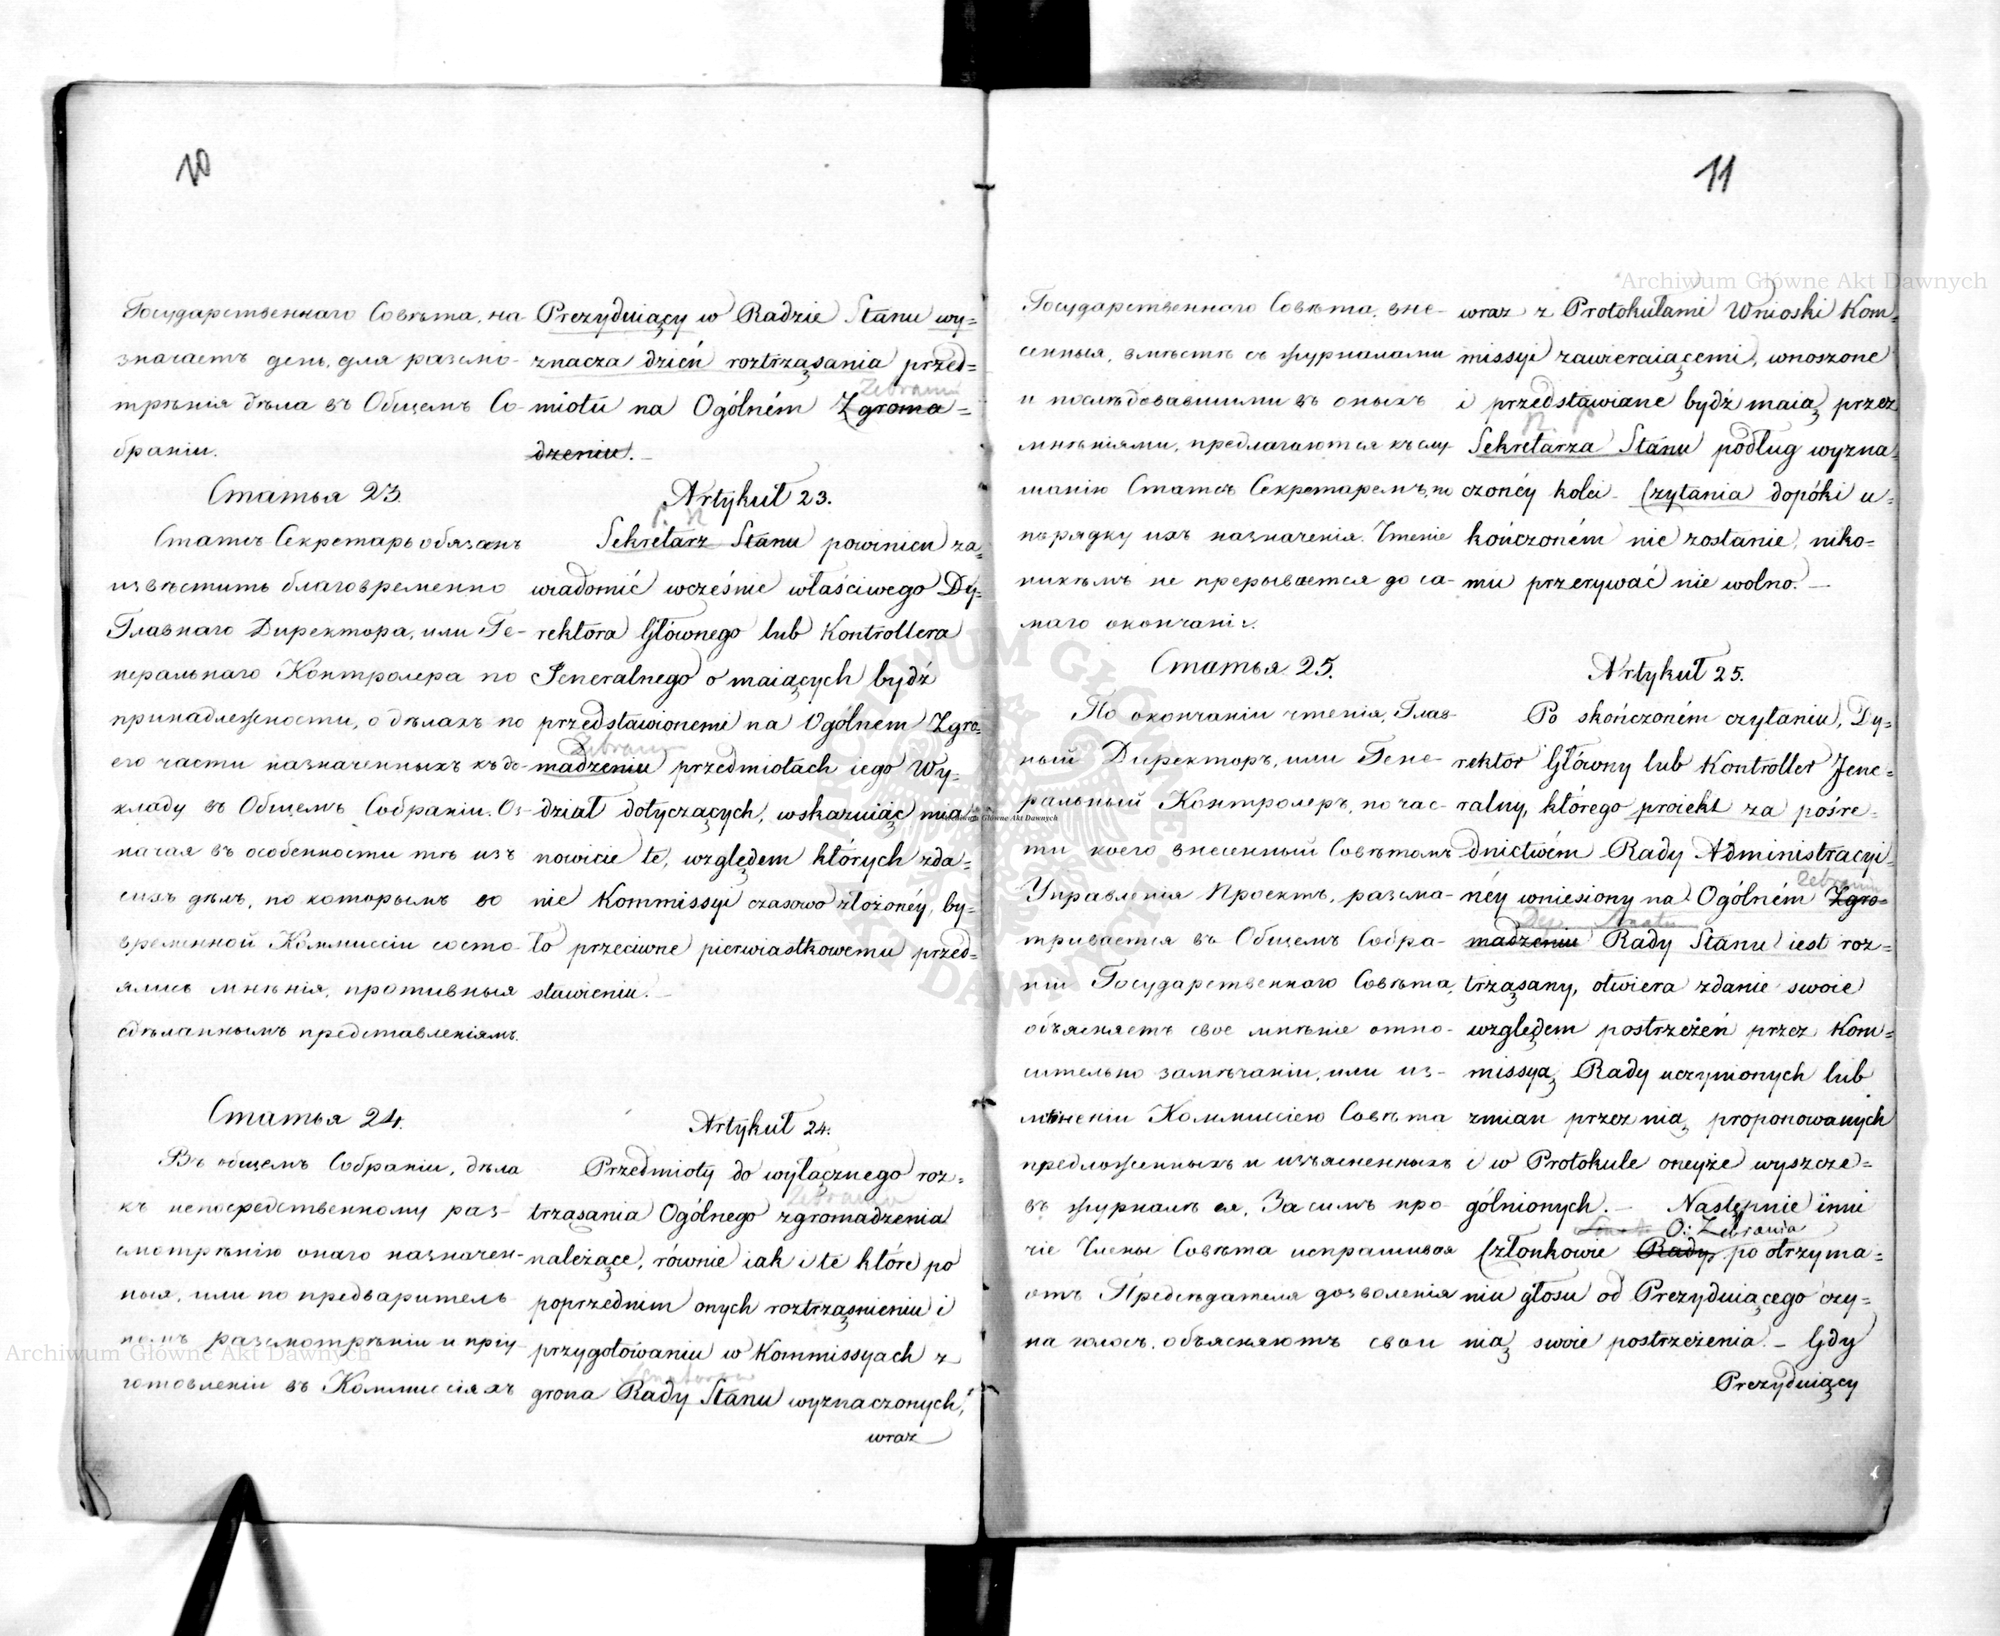 10
Государственнаго Совѣта, на-
значаетъ день, для разсмо-
трѣнія дѣла въ Общемъ Со-
браніи.
Статья 23.
Статсъ Секретарь обязанъ
извѣстить благовременно
Главнаго Директора, или Ге-
неральнаго Контролера по
принадлежности, о дѣлахъ по
его части назначенныхъ къ до-
кладу въ Общемъ Собраніи. Оз-
начая въ особенности тѣ изъ
сихъ дѣлъ, по которымъ во
временной Коммиссіи состо-
ялись мнѣнія, противныя
сдѣланнымъ представленіямъ.
Статья 24.
Въ общемъ Собраніи, дѣла
къ непосредственному раз-
смотрѣнію онаго назначен-
ныя, или по предваритель-
номъ разсмотрѣніи и пріу-
готовленіи въ Коммиссіяхъ
Prezyduiący w Radzie Stanu wy=
znacza dzień roztrząsania przed=
Zebraniu
miotu na Ogólném Zgroma=
dzeniu.
Artykuł 23.
Sekretarz Stanu powinien za=
wiadomić wcześnie właściwego Dy=
rektora Głównego lub Kontrollera
Jeneralnego o maiących bydź
przedstawionemi na Ogólnem Zgro=
Zebraniu
madzeniu przedmiotach iego Wy=
dział dotyczących, wskazuiąc mia
nowicie te, względem których zda=
nie Kommissyi czasowo złożonéy, by=
ło przeciwne pierwiastkowemu przed=
stawieniu.
Artykuł 24.
Przedmioty do wyłącznego roz=
Zebrania
trząsania Ogólnego zgromadzenia
należące, równie iak i te które po
poprzedniem onych roztrząśnieniu i
przygotowaniu w Kommissyach z
grona Rady Stanu wyznaczonych,
wraz
11
Государственнаго Совѣта, вне-
сенныя, вмѣстѣ съ журналами
и послѣдовавшими въ оныхъ
мнѣніями, предлагаются къ слу-
шанію Статсъ Секретаремъ, по
порядку ихъ назначенія. Чтеніе
никѣмъ не прерывается до са-
маго окончанія.
Статья 25.
По окончаніи чтенія, Глав-
ный Директоръ, или Гене-
ральный Контролеръ, по час-
ти коего внесенный Совѣтомъ
Управленія Проектъ, разсма-
тривается въ Общемъ Собра-
ніи Государственнаго Совѣта,
объясняетъ свое мнѣніе отно-
сительно замѣчаніи, или из-
мѣненіи Коммиссіею Совѣта
предложенныхъ и изъясненныхъ
въ журналѣ ея. За симъ про-
чіе Члены Совѣта испрашивая
отъ Предсѣдателя дозволенія
на голосъ, объясняютъ свои
wraz z Protokułami Wnioski Kom=
missyi zawieraiącemi, wnoszone
i przedstawiane bydź maią przez
Sekretarza Stanu podług wyzna
czonéy kolei. Czytania dopóki u=
kończoném nie zostanie, niko=
mu przerywać nie wolno.
Artykuł 25.
Po skończoném czytaniu, Dy=
rektor Główny lub Kontroller Jene=
ralny, którego proiekt za pośre=
dnictwém Rady Administracyi=
Zebraniu
néy wniesiony na Ogólném Zgro=
madzeniu Rady Stanu iest roz=
trząsany, otwiera zdanie swoie
względem postrzeżeń przez Kom=
missyą Rady uczynionych lub
zmian przez nią proponowanych
i w Protokule oneyże wyszcze=
gólnionych. — Następnie inni
O: Zebrania
Członkowie Rady po otrzyma=
niu głosu od Prezyduiącego czy=
nią swoie postrzeżenia. — Gdy
Prezyduiący
Archiwum Główne Akt Dawnych
Archiwum Główne Akt Dawnych